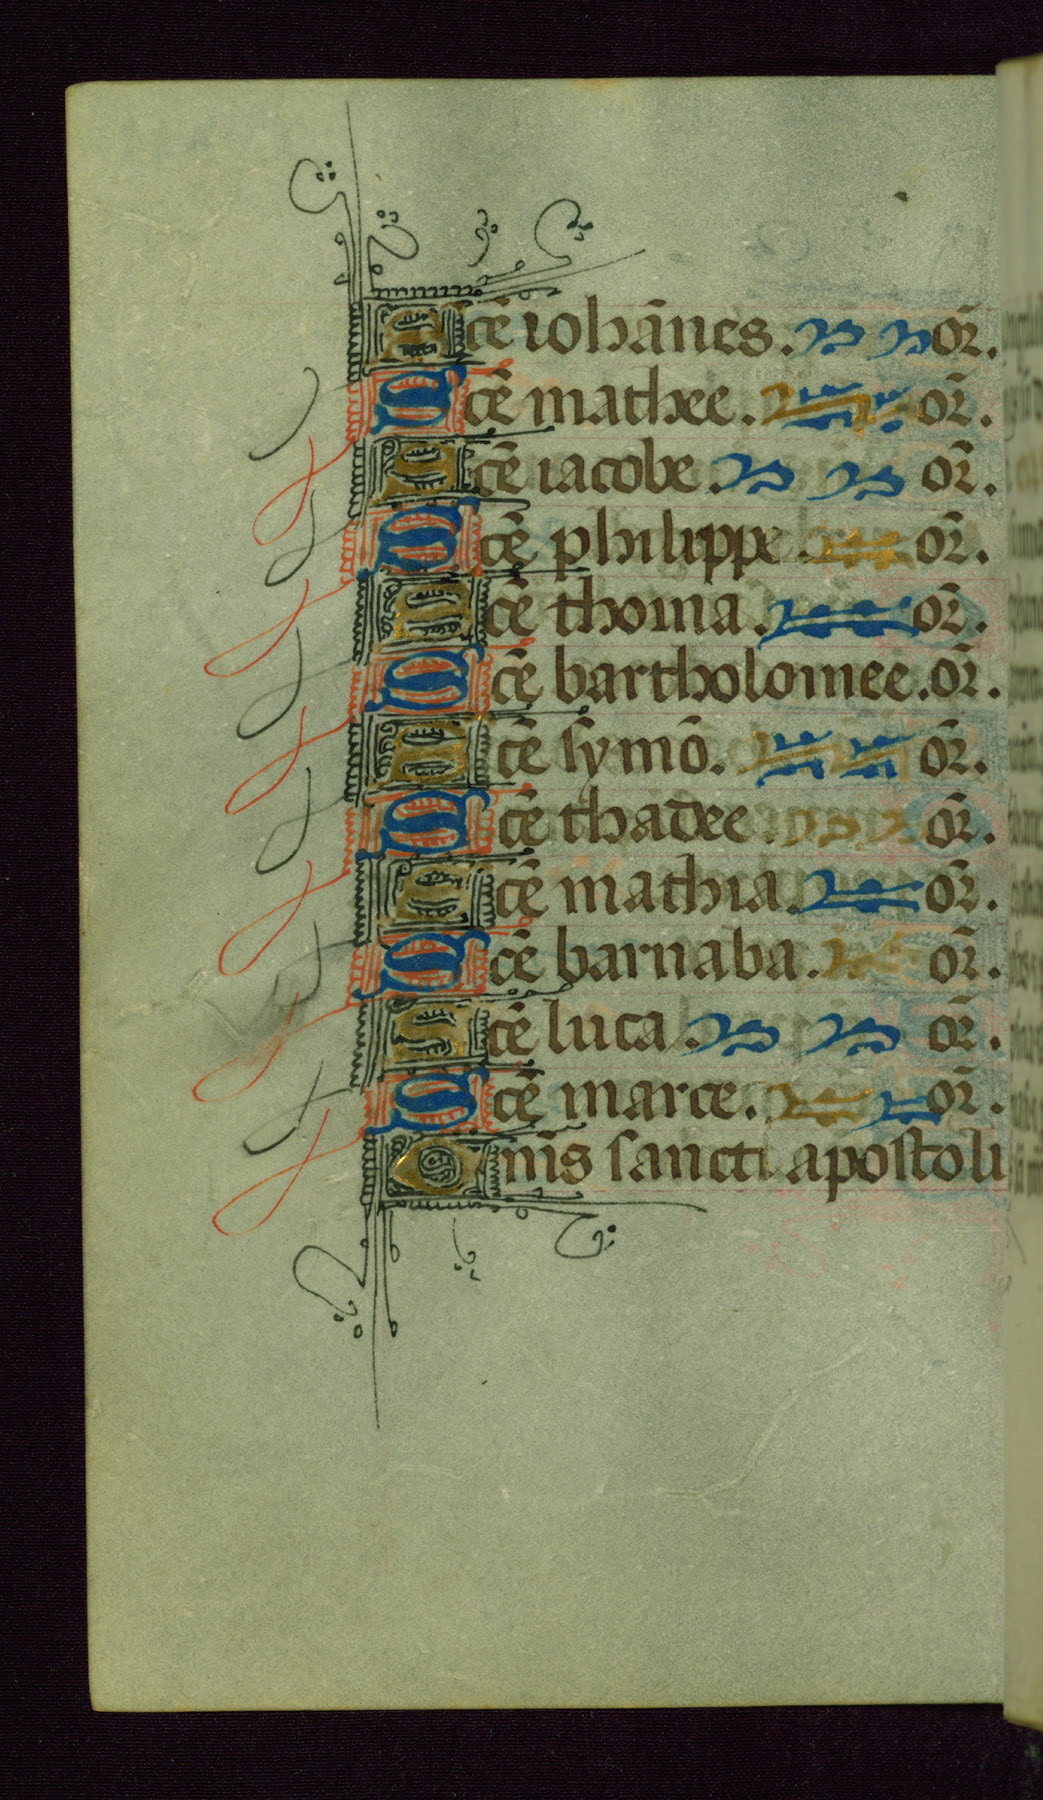 Scē iohānes. or̄.
Scē mathee. or̄.
Scē iacobe. or̄.
Scē philippe. or̄.
Scē thoma. or̄.
Scē bartholomee. or̄.
Scē symō. or̄.
Scē thadee. or̄.
Scē mathia. or̄.
Scē barnaba. or̄.
Scē luca. or̄.
Scē marce. or̄.
Om̄s sancti apostoli